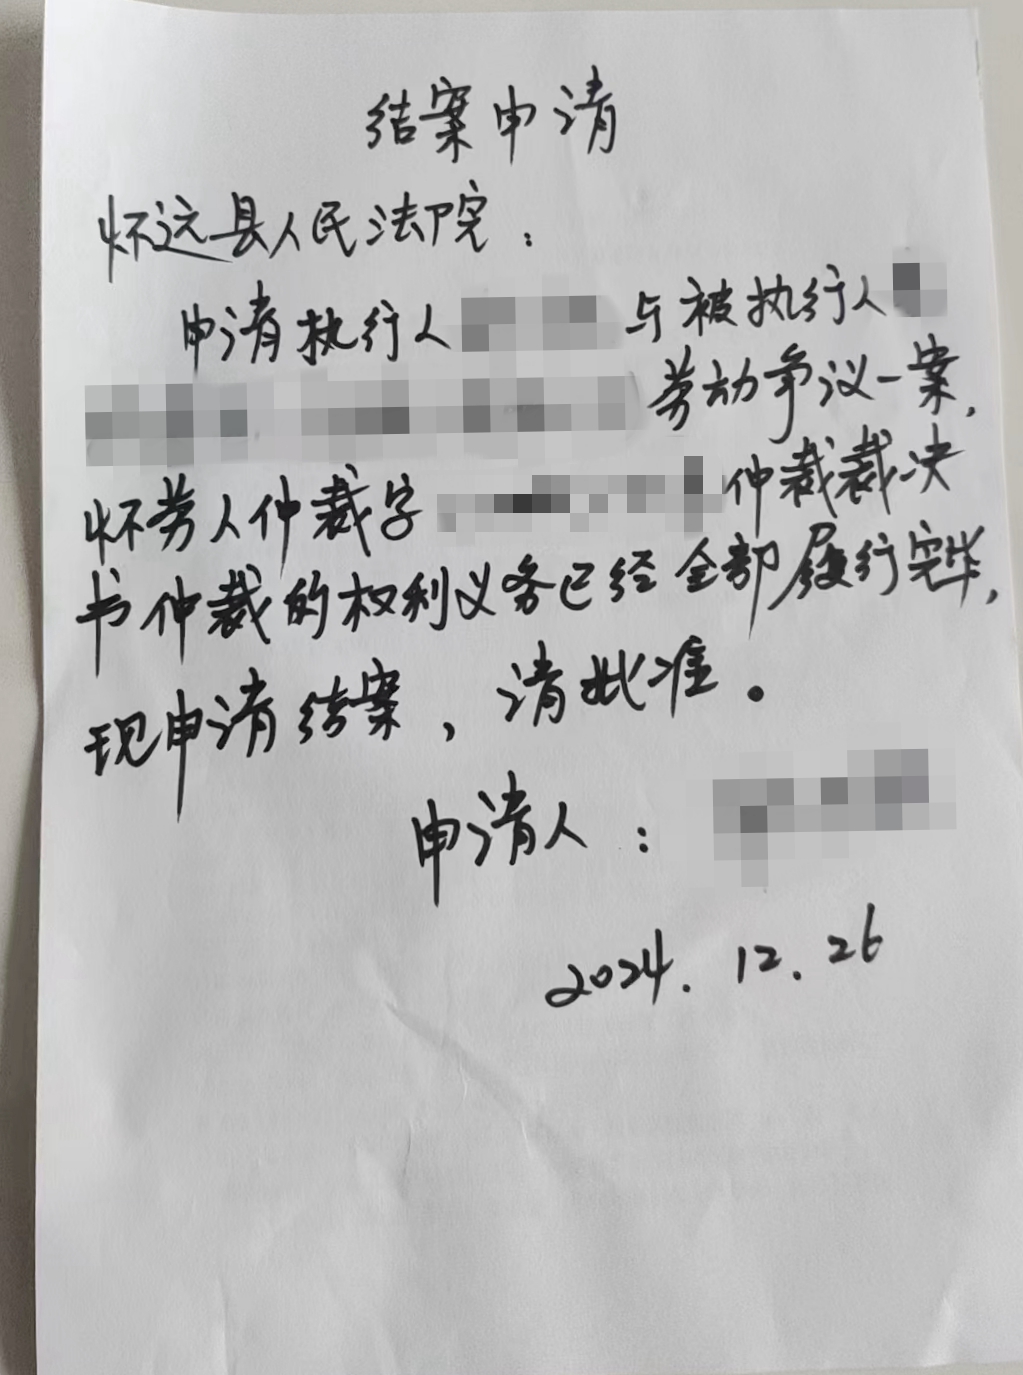 结案申请
怀远县人民法院：
申请执行人 与被执行人
劳动争议一案，
怀劳人仲裁字 仲裁裁决
书仲裁的权利义务已经全部履行完毕，
现申请结案，请批准。
申请人：
2024.12.26